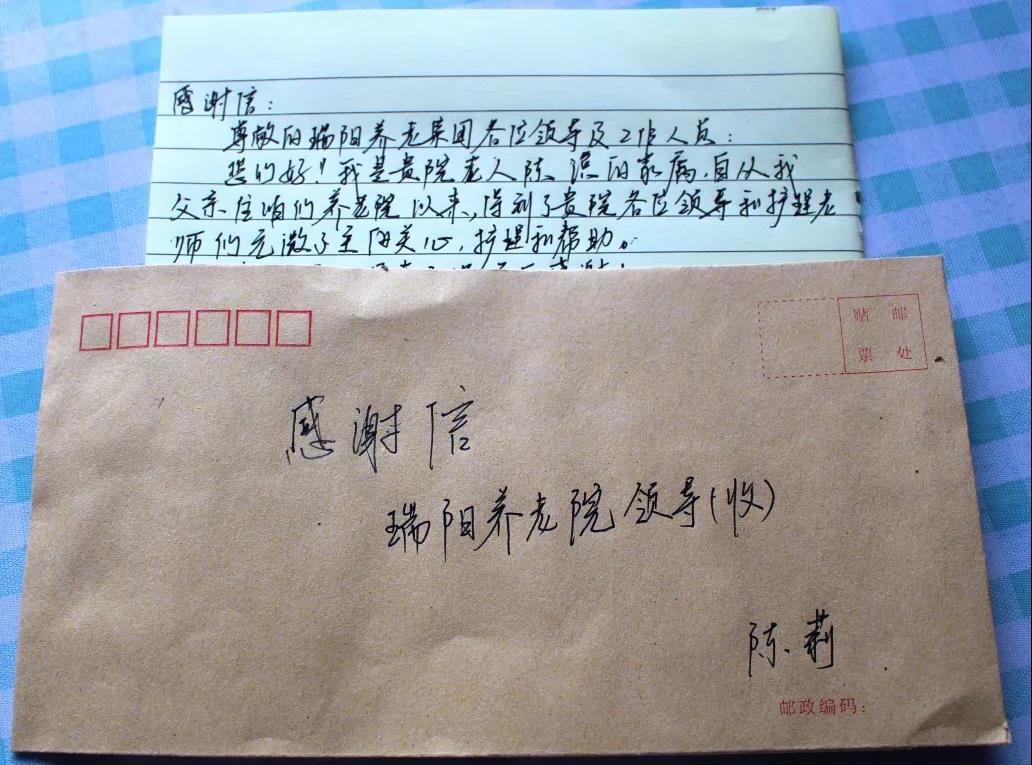 感谢信：
尊敬的瑞阳养老集团各位领导及工作人员：
您们好！我是贵院老人陈 的家 ，自从我
父亲住咱们养老院以来，得到了贵院各位领导和护理老
师们无微 至的关心，护理和帮助。
感谢！
贴 邮
票 处
感谢信
瑞阳养老院领导(收)
陈莉
邮政编码：